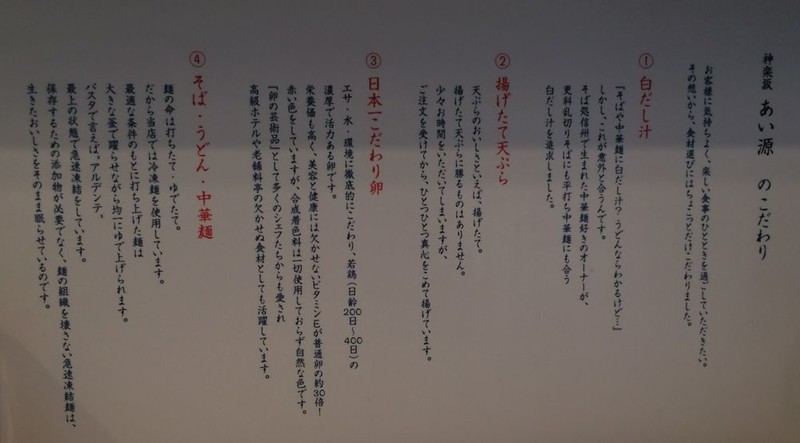 神楽坂 あい源 のこだわり
お客様に気持ちよく、楽しい食事のひとときを過ごしていただきたい。
その想いから、食材選びにはちょこっとだけこだわりました。
① 白だし汁
『そばや中華麺に白だし汁？ うどんならわかるけど…』
しかし、これが意外と合うんです。
そば処信州で生まれた中華麺好きのオーナーが、
更科乱切りそばにも平打ち中華麺にも合う
白だし汁を追求しました。
② 揚げたて天ぷら
天ぷらのおいしさといえば、揚げたて。
揚げたて天ぷらに勝るものはありません。
少々お時間をいただいてしまいますが、
ご注文を受けてから、ひとつひとつ真心をこめて揚げています。
③ 日本一こだわり卵
エサ・水・環境に徹底的にこだわり、若鶏(日齢200日〜400日)の
濃厚で活力ある卵です。
栄養価も高く、美容と健康には欠かせないビタミンEが普通卵の約30倍！
赤い色をしていますが、合成着色料は一切使用しておらず自然な色です。
『卵の芸術品』として多くのシェフたちからも愛され
高級ホテルや老舗料亭の欠かせぬ食材としても活躍しています。
④ そば・うどん・中華麺
麺の命は打ちたて・ゆでたて。
だから当店では冷凍麺を使用しています。
最適な条件のもとに打ち上げた麺は
大きな釜で躍らせながら均一にゆで上げられます。
パスタで言えば、アルデンテ。
最上の状態で急速凍結をしています。
保存するための添加物が必要でなく、麺の組織を壊さない急速凍結麺は、
生きたおいしさをそのまま眠らせているのです。